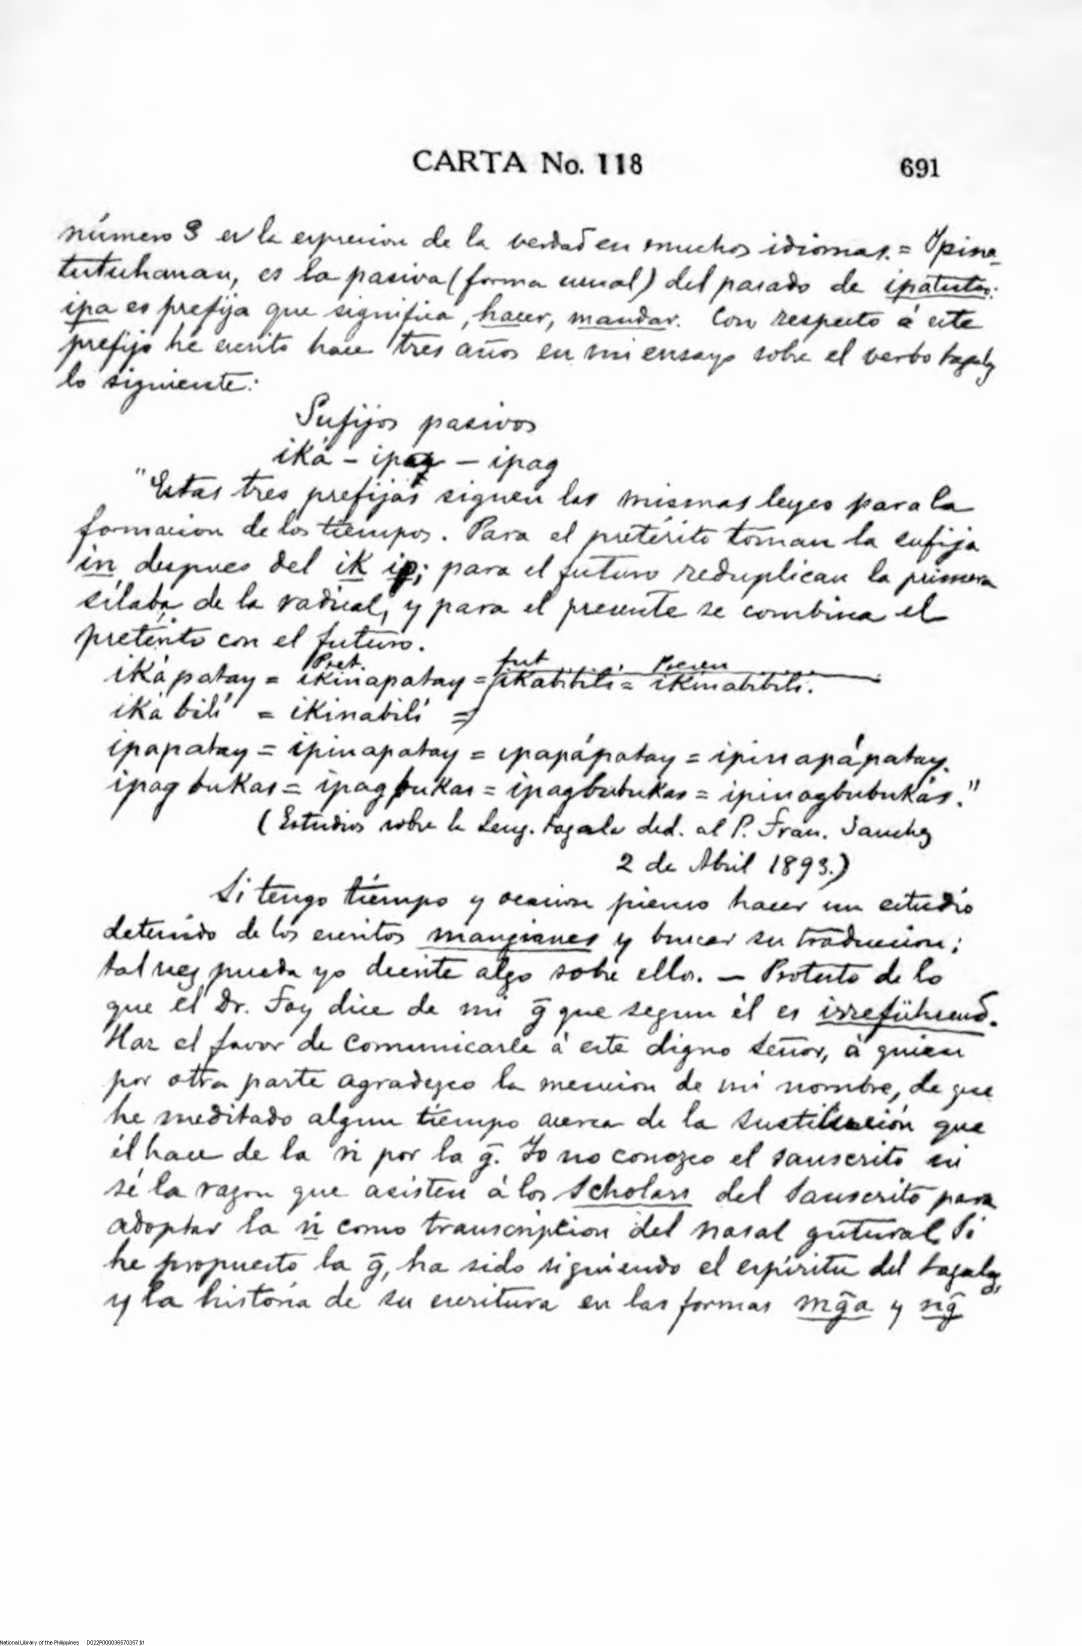 CARTA No. 118
691
número 3 es la expresion de la verdad en muchos idiomas. = Ipina-
tutuhanan, es la pasiva (forma usual) del pasado de ipatutoo:
ipa es prefija que significa, hacer, mandar. Con respecto á este
prefijo he escrito hace tres años en mi ensayo sobre el verbo tagalog
lo siguiente:
Sufijos pasivos
iká - ipag - ipag
"Estas tres prefijas siguen las mismas leyes para la
formacion de los tiempos. Para el pretérito toman la sufija
in despues del ik ip; para el futuro reduplican la primera
sílaba de la radical, y para el presente se combina el
pretérito con el futuro.
Pret. fut Presen
ikápatay = ikinapatay = ikabibili = ikinabibili.
iká bilí = ikinabilí =
ipapatay = ipinapatay = ipapápatay = ipinapápatay.
ipag bukas = ipagbukas = ipagbubukas = ipinagbubukás."
(Estudios sobre la Leng. tagala ded. al P. Fran. Sanchez
2 de Abril 1893.)
Si tengo tiempo y ocasion pienso hacer un estudio
detenido de los escritos mangianes y buscar su traduccion;
tal vez pueda yo decirte algo sobre ellos. — Protesto de lo
que el Dr. Foy dice de mi g̃ que segun él es irreführend.
Haz el favor de comunicarle á este digno Señor, á quien
por otra parte agradezco la mencion de mi nombre, de que
he meditado algun tiempo acerca de la sustitucion que
él hace de la ṅ por la g̃. Yo no conozco el sanscrito ni
sé la razon que asisten á los Scholars del Sanscrito para
adoptar la ṅ como transcripcion del nasal gutural. Si
he propuesto la g̃, ha sido siguiendo el espíritu del tagalog,
y la história de su escritura en las formas mg̃a y ng̃
National Library of the Philippines